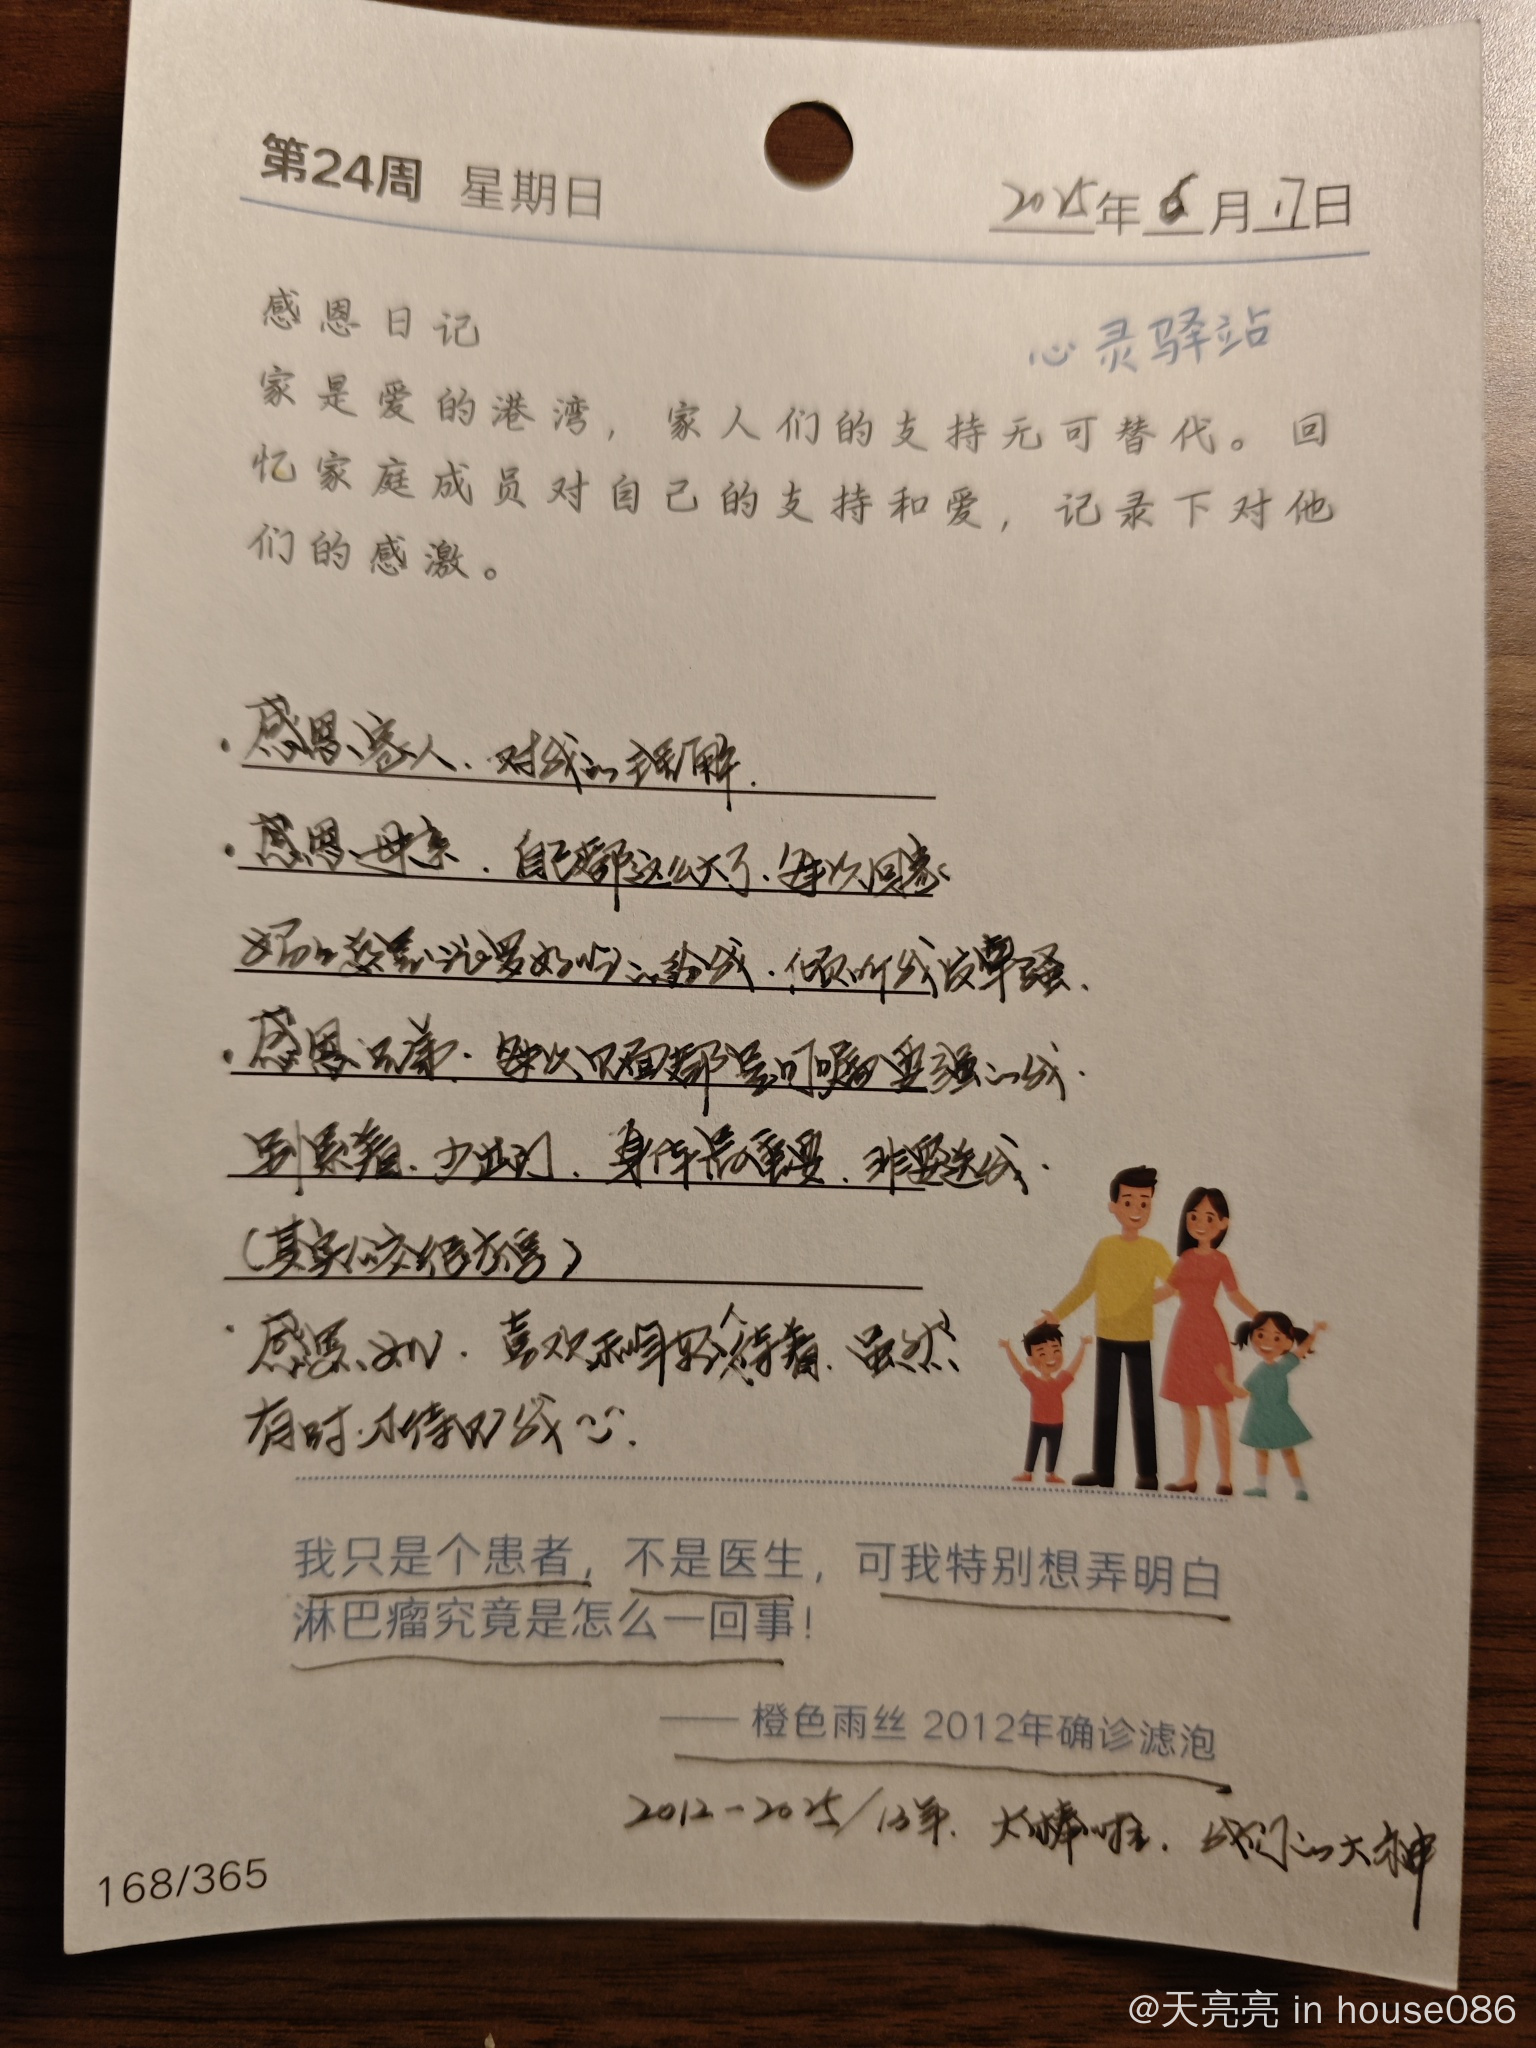 第24周 星期日
2025年6月17日
感恩日记
心灵驿站
家是爱的港湾，家人们的支持无可替代。回
忆家庭成员对自己的支持和爱，记录下对他
们的感激。
·感恩家人、对我的理解.
·感恩母亲.自己都这么大了.每次回家
妈妈总是 好吃的给我.倾听我发牢骚.
·感恩兄弟.每次见面都是叮嘱要强的我.
别累着.少出门.身体最重要.非要送我.
(其实心交 )
·感恩 .喜欢和年轻人待着.虽然
有时.不待见我
我只是个患者，不是医生，可我特别想弄明白
淋巴瘤究竟是怎么一回事！
—— 橙色雨丝 2012年确诊滤泡
2012-2025/13年.太棒啦.我们的大神
168/365
@天亮亮 in house086